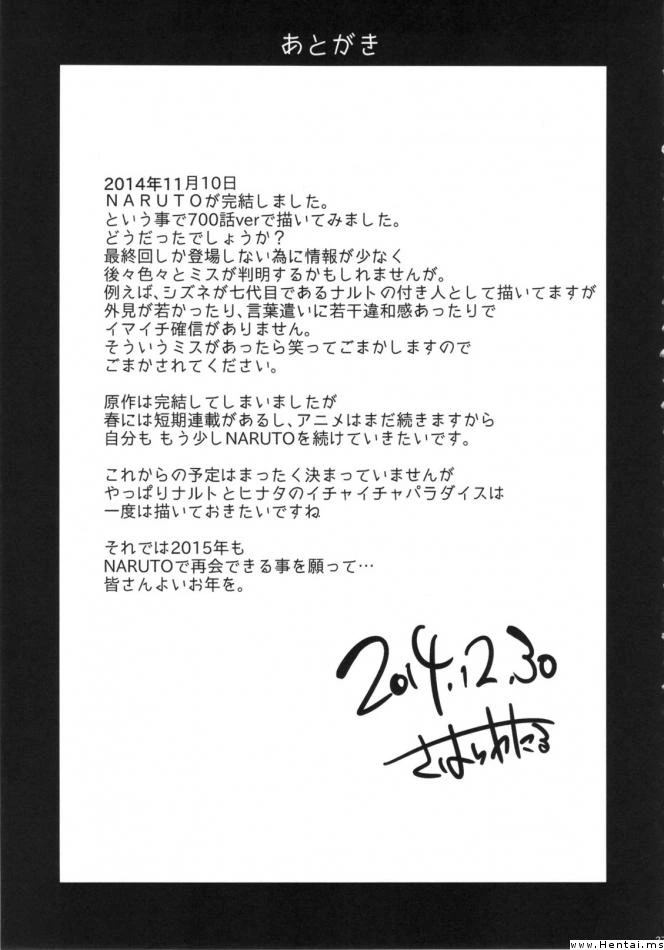 あとがき
2014年11月10日
ＮＡＲＵＴＯが完結しました。
という事で700話verで描いてみました。
どうだったでしょうか？
最終回しか登場しない為に情報が少なく
後々色々とミスが判明するかもしれませんが。
例えば、シズネが七代目であるナルトの付き人として描いてますが
外見が若かったり、言葉遣いに若干違和感あったりで
イマイチ確信がありません。
そういうミスがあったら笑ってごまかしますので
ごまかされてください。
原作は完結してしまいましたが
春には短期連載があるし、アニメはまだ続きますから
自分も もう少しNARUTOを続けていきたいです。
これからの予定はまったく決まっていませんが
やっぱりナルトとヒナタのイチャイチャパラダイスは
一度は描いておきたいですね
それでは2015年も
NARUTOで再会できる事を願って…
皆さんよいお年を。
2014.12.30
さはらわたる
www.Hentai.ms